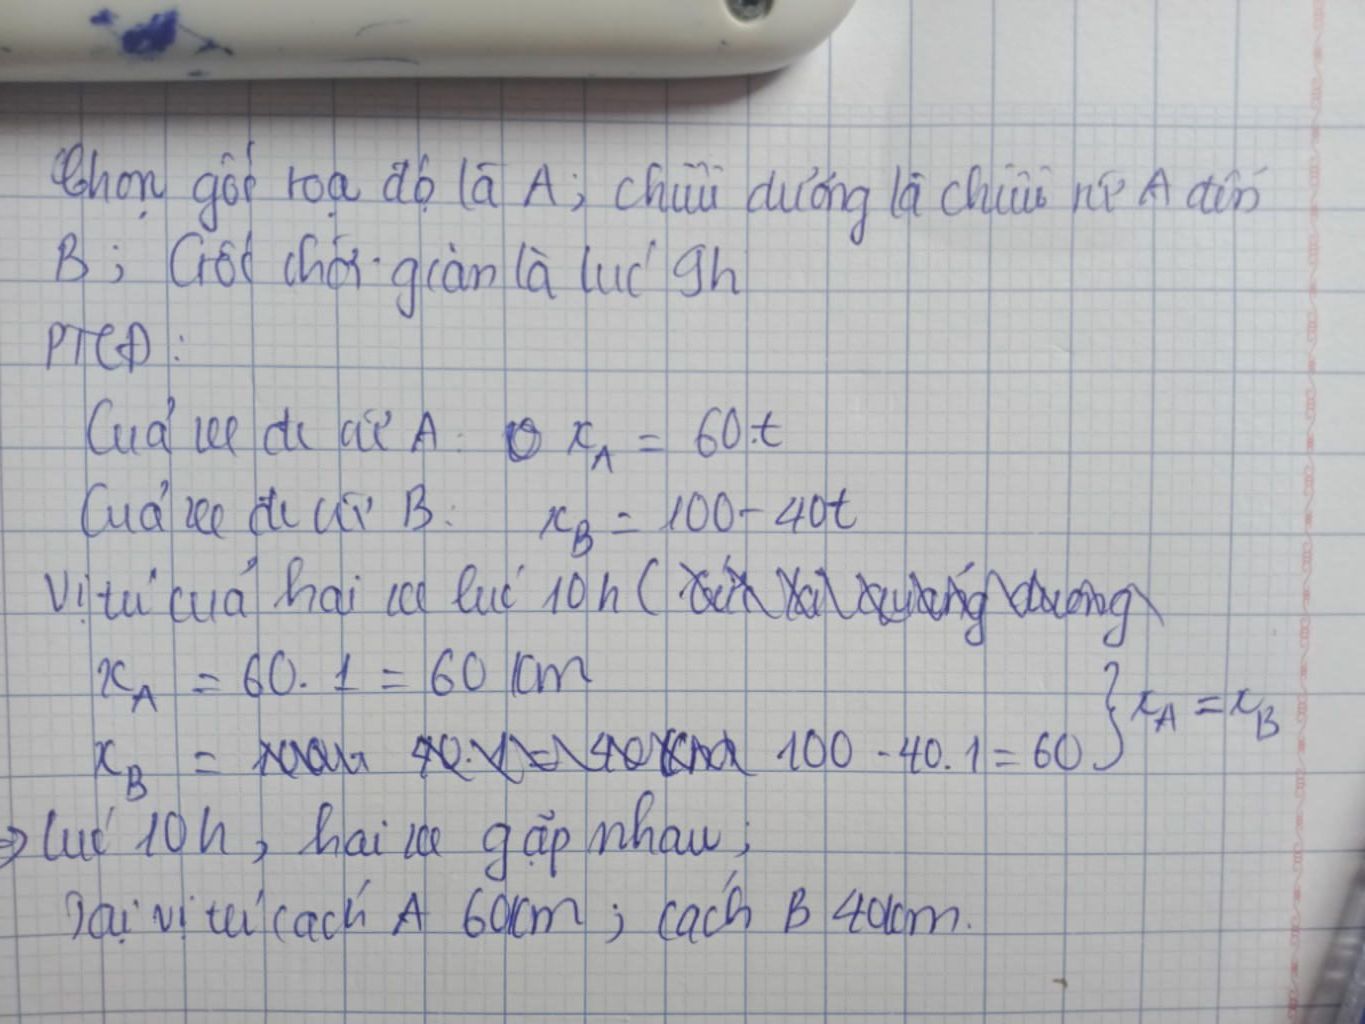 Chọn gốc toạ độ là A; chiều dương là chiều từ A đến
B; Gốc thời gian là lúc 9h
PTCĐ:
Của xe đi từ A: x_A = 60.t
Của xe đi từ B: x_B = 100-40t
Vị trí của hai xe lúc 10h (
x_A = 60.1 = 60 km
x_B = 100 - 40.1 = 60 } x_A = x_B
⇒ lúc 10h, hai xe gặp nhau;
Tại vị trí cách A 60km; cách B 40km.